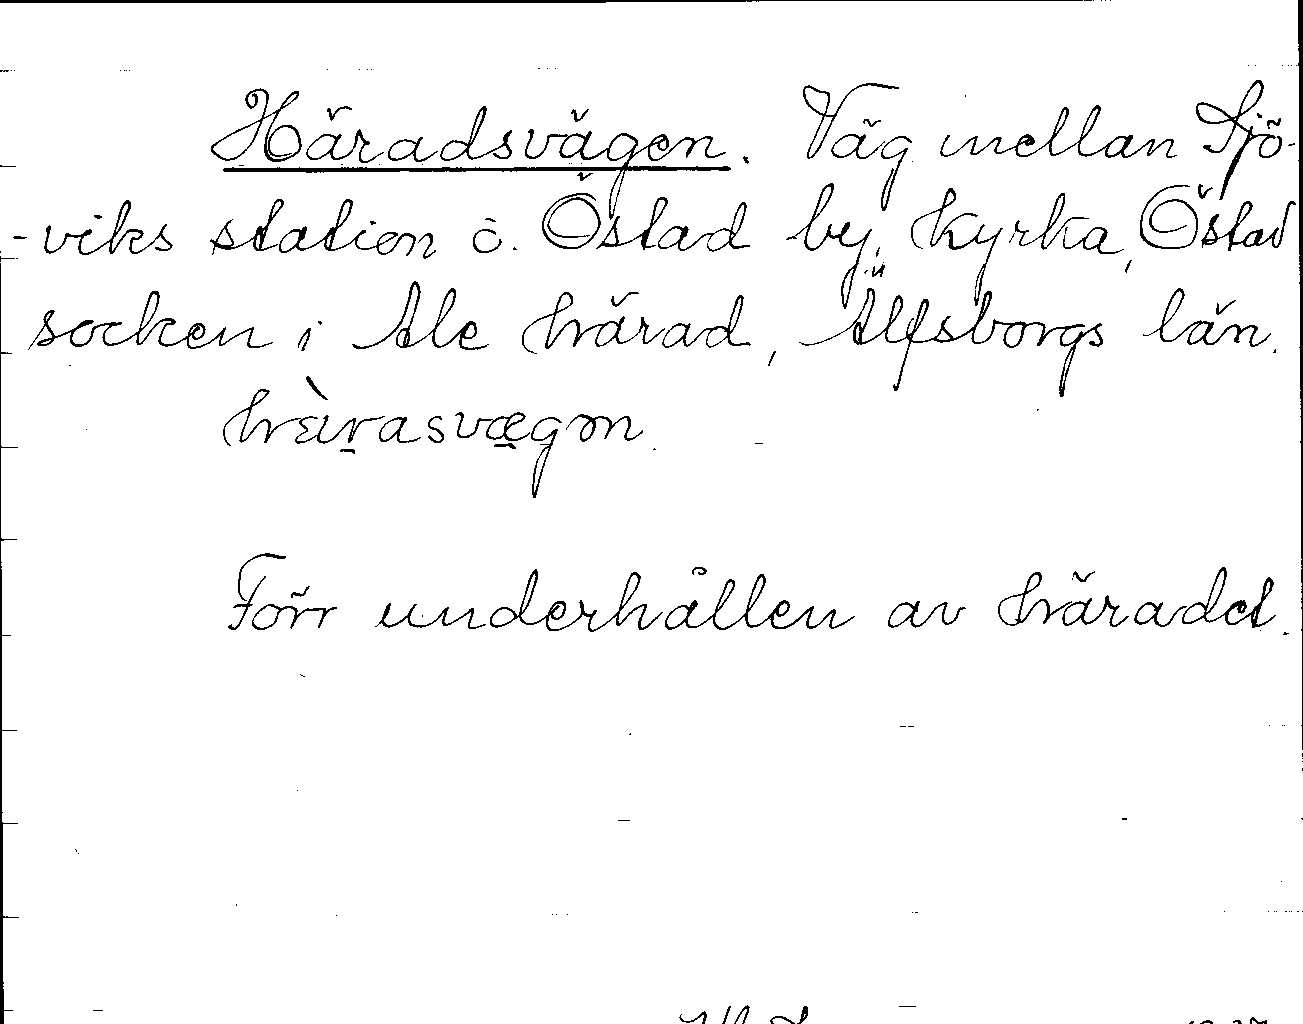 Häradsvägen. Väg mellan Sjö-
-viks station o. Östad by, kyrka, Östad
socken i Ale härad, Älfsborgs län.
Förr underhållen av häradet.